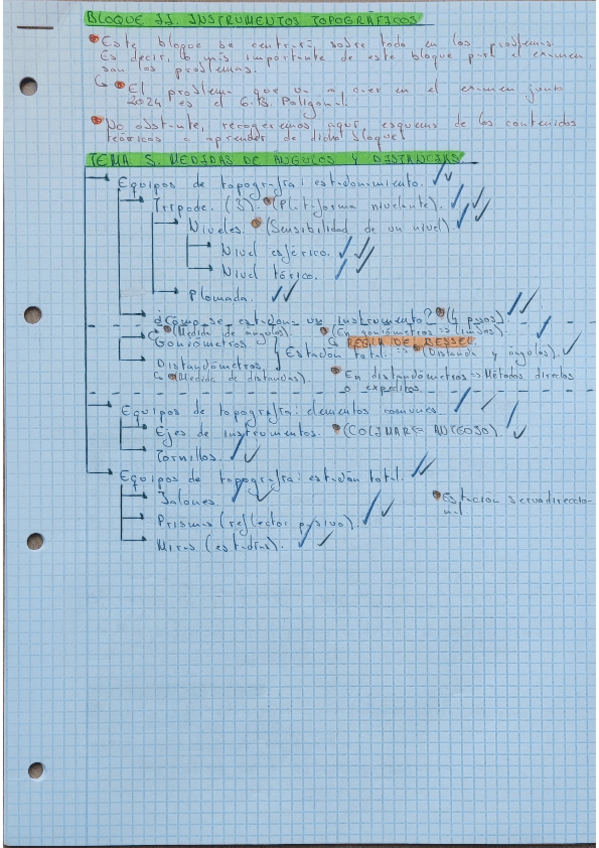 BLOQUE II. INSTRUMENTOS TOPOGRÁFICOS
Este bloque se centrará sobre todo en los problemas.
Es decir, lo más importante de este bloque para el examen
son los problemas.
El problema que va a caer en el examen junio
2024 es el 6.B. Poligonal.
No obstante, recogeremos aquí esquema de los contenidos
teóricos a aprender de dicho bloque!
TEMA 5. MEDIDAS DE ÁNGULOS Y DISTANCIAS
Equipos de topografía: estacionamiento.
Trípode. (3). (Plataforma nivelante).
Niveles. (Sensibilidad de un nivel).
Nivel esférico.
Nivel tórico.
Plomada.
¿Cómo se estaciona un instrumento? (4 pasos)
(Medida de ángulos). (En goniómetros => limbos).
Goniómetros REGLA DE BESSEL
Estación total. (Distancia y ángulos).
Distanciómetros.
(Medida de distancias). En distanciómetros => Métodos directos
o expeditos
Equipos de topografía: elementos comunes.
Ejes de instrumentos. (COLIMAR = ANTEOJO).
Tornillos.
Equipos de topografía: estación total.
Jalones. Estación servodireccio-
nal
Prismas (reflector pasivo).
Miras (estadías).